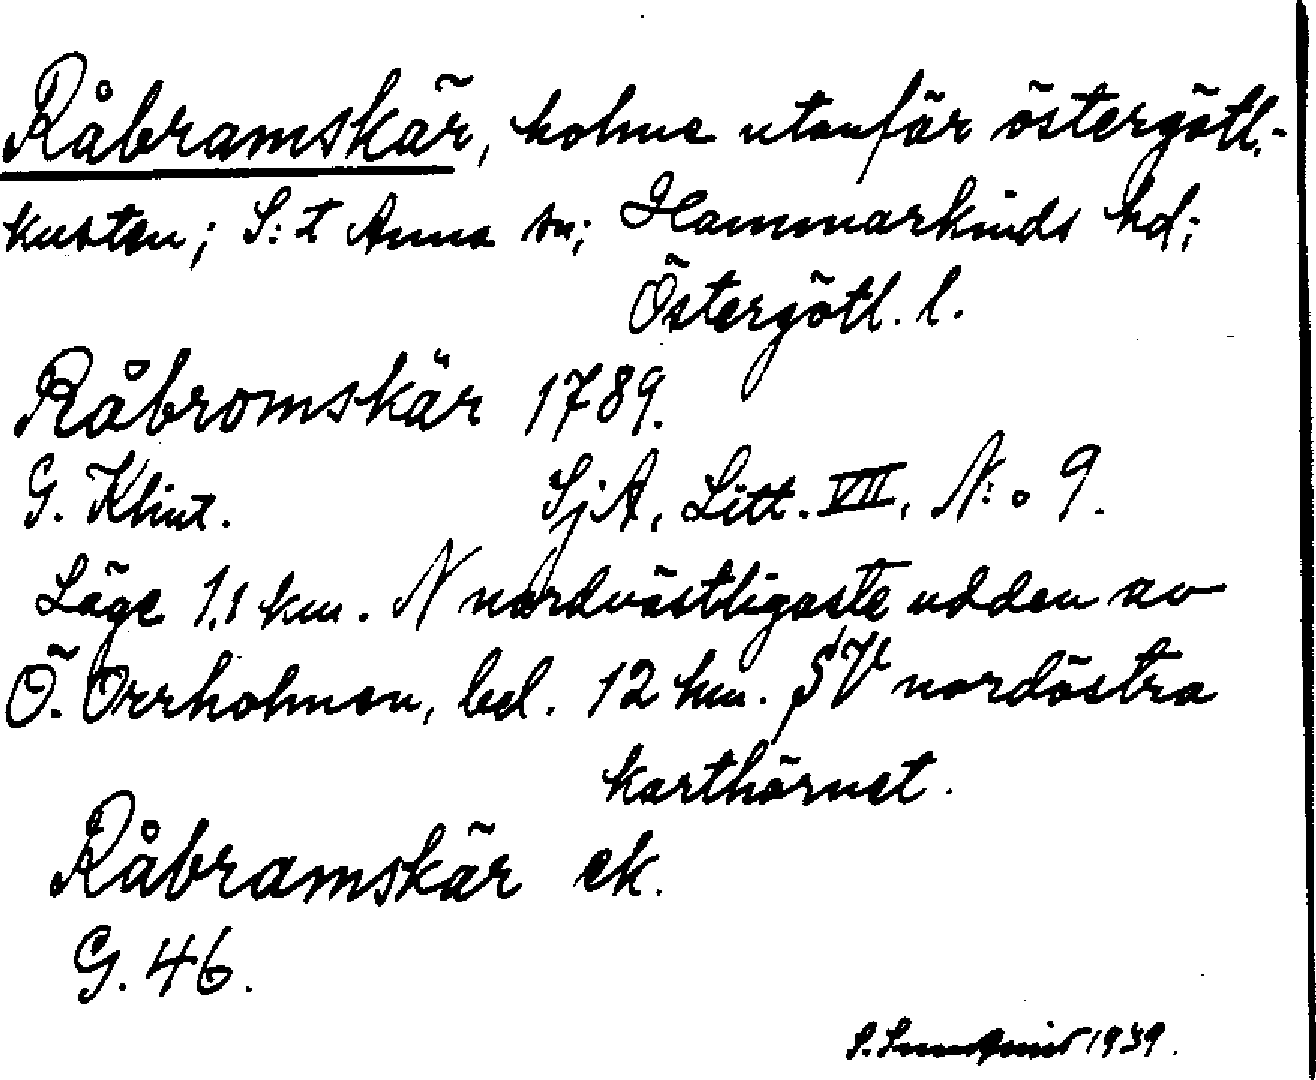 Råbramskär, holme utanför östergötl.-
kusten; S:t Anna sn; Hammarkinds hd;
Östergötl. l.
Råbromskär 1789.
G. Klint. SjA, Litt. VII, N:o 9.
Läge 1,1 km. N nordvästligaste udden av
Ö. Orrholmen, bel. 12 km. SV nordöstra
karthörnet.
Råbramskär ek.
G. 46.
S. Sundqvist 1939.